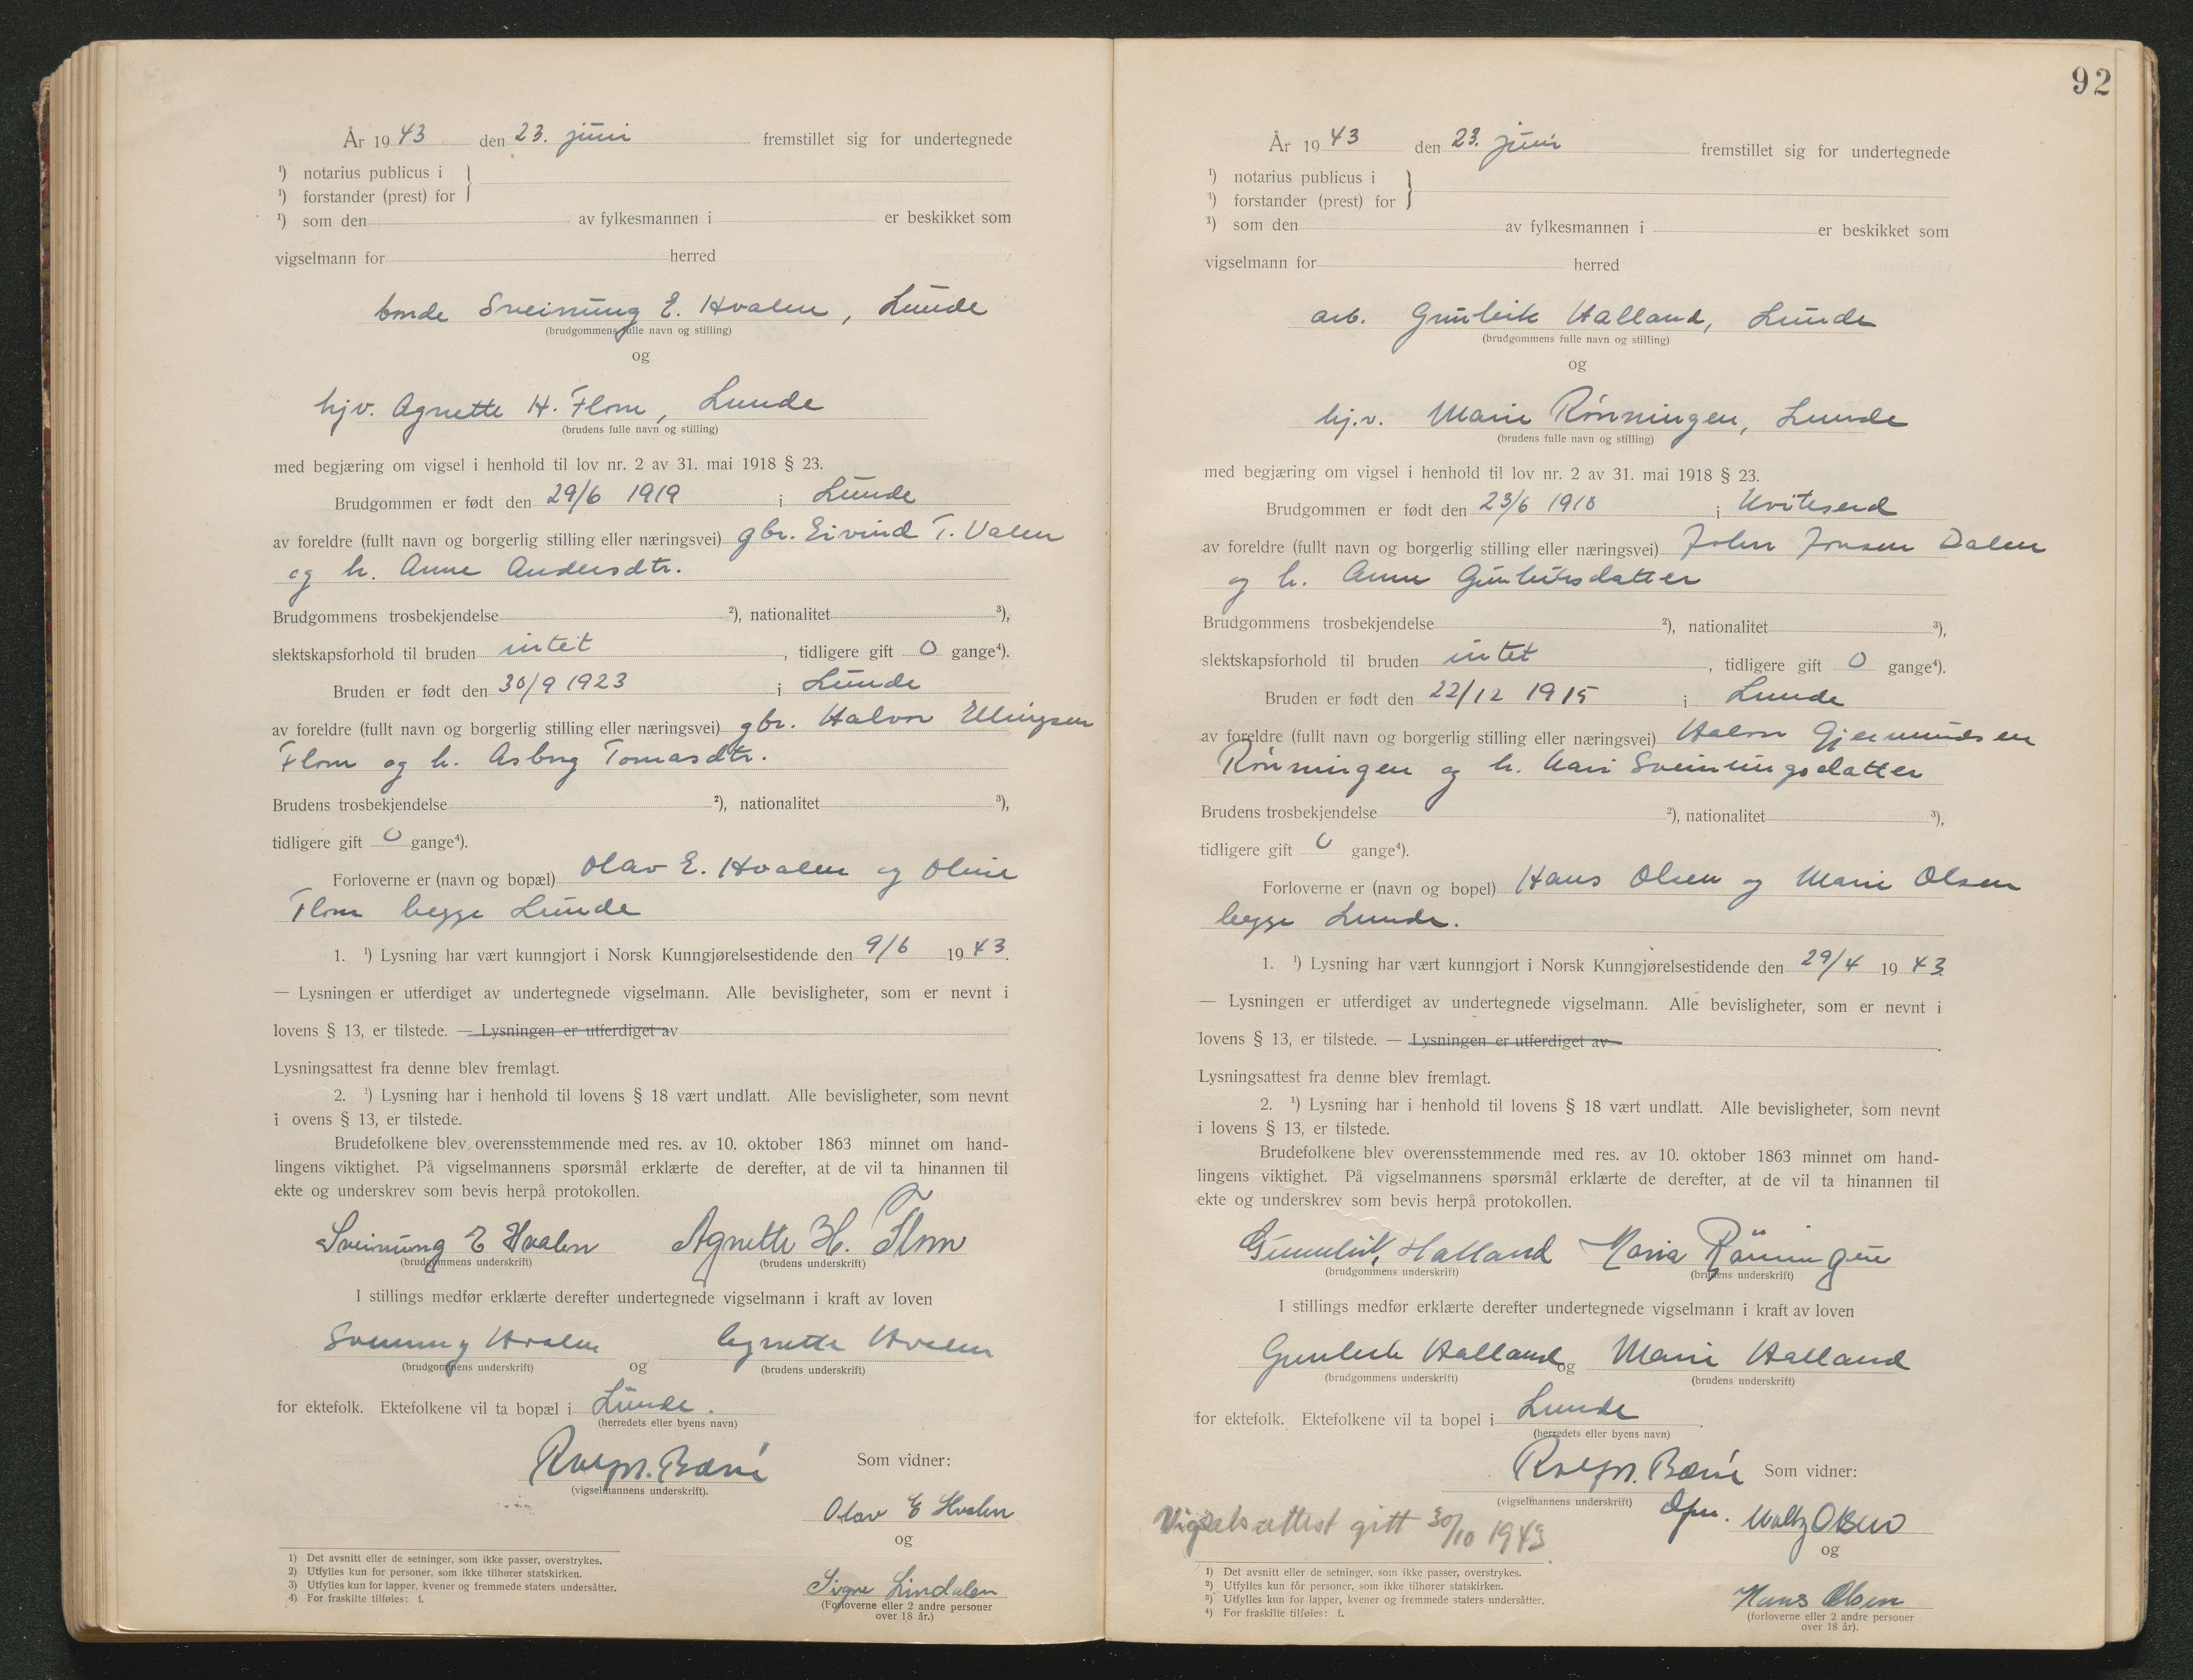 År 1943 den 23. juni fremstillet sig for undertegnede
¹) notarius publicus i
¹) forstander (prest) for
¹) som den av fylkesmannen i er beskikket som
vigselmann for herred
bonde Sveinung E. Hvalen, Lunde
(brudgommens fulle navn og stilling)
og
hjv. Agnette H. Flom, Lunde
(brudens fulle navn og stilling)
med begjæring om vigsel i henhold til lov nr. 2 av 31. mai 1918 § 23.
Brudgommen er født den 29/6 1919 i Lunde
av foreldre (fullt navn og borgerlig stilling eller næringsvei) gbr. Eivind T. Valen
og h. Anne Andersdtr.
Brudgommens trosbekjendelse ²), nationalitet ³),
slektskapsforhold til bruden intet, tidligere gift 0 gange⁴).
Bruden er født den 30/9 1923 i Lunde
av foreldre (fullt navn og borgerlig stilling eller næringsvei) gbr. Halvor Ellingsen
Flom og h. Asbrg Tomasdtr.
Brudens trosbekjendelse ²), nationalitet ³),
tidligere gift 0 gange⁴).
Forloverne er (navn og bopæl) Olav E. Hvalen og Oline
Flom begge Lunde
1. ¹) Lysning har vært kunngjort i Norsk Kunngjørelsestidende den 9/6 1943.
— Lysningen er utferdiget av undertegnede vigselmann. Alle bevisligheter, som er nevnt i
lovens § 13, er tilstede. — Lysningen er utferdiget av
Lysningsattest fra denne blev fremlagt.
2. ¹) Lysning har i henhold til lovens § 18 vært undlatt. Alle bevisligheter, som nevnt
i ovens § 13, er tilstede.
Brudefolkene blev overensstemmende med res. av 10. oktober 1863 minnet om hand-
lingens viktighet. På vigselmannens spørsmål erklærte de derefter, at de vil ta hinannen til
ekte og underskrev som bevis herpå protokollen.
Sveinung E Hvalen Agnette H. Flom
(brudgommens underskrift) (brudens underskrift)
I stillings medfør erklærte derefter undertegnede vigselmann i kraft av loven
Sveinung Hvalen og Agnette Hvalen
(brudgommens underskrift) (brudens underskrift)
for ektefolk. Ektefolkene vil ta bopæl i Lunde.
(herredets eller byens navn)
(vigselmannens underskrift).
Som vidner:
Olav E Hvalen
og
Signe Lindalen
(Forloverne eller 2 andre personer
over 18 år.)
1) Det avsnitt eller de setninger, som ikke passer, overstrykes.
2) Utfylles kun for personer, som ikke tilhører statskirken.
3) Utfylles kun for lapper, kvener og fremmede staters undersåtter.
4) For fraskilte tilføies: f.
92
År 1943 den 23. juni fremstillet sig for undertegnede
¹) notarius publicus i
¹) forstander (prest) for
¹) som den av fylkesmannen i er beskikket som
vigselmann for herred
arb. Gunleik Halland, Lunde
(brudgommens fulle navn og stilling)
og
hj.v. Marie Rønningen, Lunde
(brudens fulle navn og stilling)
med begjæring om vigsel i henhold til lov nr. 2 av 31. mai 1918 § 23.
Brudgommen er født den 23/6 1918 i Kviteseid
av foreldre (fullt navn og borgerlig stilling eller næringsvei) John Jonsen Dalen
og h. Anne Gunleiksdatter
Brudgommens trosbekjendelse ²), nationalitet ³),
slektskapsforhold til bruden intet, tidligere gift 0 gange⁴).
Bruden er født den 22/12 1915 i Lunde
av foreldre (fullt navn og borgerlig stilling eller næringsvei) Halvor Gjermundsen
Rønningen og h. Kari Sveinungsdatter
Brudens trosbekjendelse ²), nationalitet ³),
tidligere gift 0 gange⁴).
Forloverne er (navn og bopel) Hans Olsen og Marie Olsen
begge Lunde.
1. ¹) Lysning har vært kunngjort i Norsk Kunngjørelsestidende den 29/4 1943.
— Lysningen er utferdiget av undertegnede vigselmann. Alle bevisligheter, som er nevnt i
lovens § 13, er tilstede. — Lysningen er utferdiget av
Lysningsattest fra denne blev fremlagt.
2. ¹) Lysning har i henhold til lovens § 18 vært undlatt. Alle bevisligheter, som nevnt
i lovens § 13, er tilstede.
Brudefolkene blev overensstemmende med res. av 10. oktober 1863 minnet om hand-
lingens viktighet. På vigselmannens spørsmål erklærte de derefter, at de vil ta hinannen til
ekte og underskrev som bevis herpå protokollen.
Gunnleik Halland Maria Rönningen
(brudgommens underskrift) (brudens underskrift)
I stillings medfør erklærte derefter undertegnede vigselmann i kraft av loven
Gunleik Halland og Marie Halland
(brudgommens underskrift) (brudens underskrift)
for ektefolk. Ektefolkene vil ta bopel i Lunde.
(herredets eller byens navn)
Som vidner:
(vigselmannens underskrift)
Vigselsattest gitt 30/10 1943
Olsen
og
Hans Olsen
(forloverne eller 2 andre personer
over 18 år).
¹) Det avsnitt eller de setninger, som ikke passer, overstrykes.
²) Utfylles kun for personer, som ikke tilhører statskirken.
³) Utfylles kun for lapper, kvener og fremmede staters undersåtter.
⁴) For fraskilte tilføies: f.